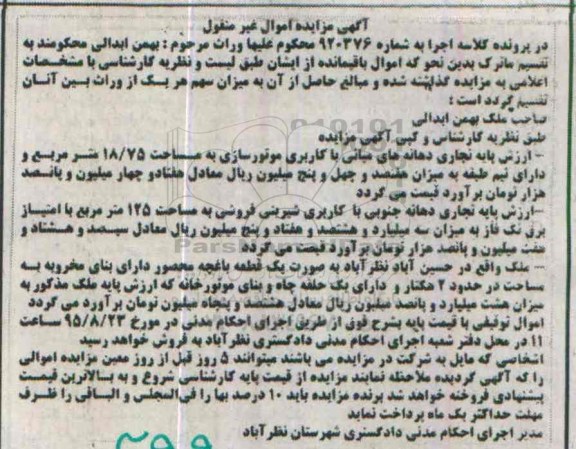 آگهی مزایده اموال غیر منقول
در پرونده کلاسه اجرا به شماره ۹۲۰۳۷۶ محکوم علیها وراث مرحوم : بهمن ابدالی محکومند به
تقسیم ماترک بدین نحو که اموال باقیمانده از ایشان طبق لیست و نظریه کارشناسی با مشخصات
اعلامی به مزایده گذاشته شده و مبالغ حاصل از آن به میزان سهم هر یک از وراث بین آنان
تقسیم گردد است :
صاحب ملک بهمن ابدالی
طبق نظریه کارشناس و کپی آگهی مزایده
– ارزش پایه تجاری دهانه های میانی با کاربری موتورسازی به مساحت ۱۸/۷۵ متر مربع و
دارای نیم طبقه به میزان هفتصد و چهل و پنج میلیون ریال معادل هفتادو چهار میلیون و پانصد
هزار تومان برآورد قیمت می گردد
–ارزش پایه تجاری دهانه جنوبی با کاربری شیرینی فروشی به مساحت ۱۲۵ متر مربع با امتیاز
برق تک فاز به میزان سه میلیارد و هشتصد و هفتاد و پنج میلیون ریال معادل سیصد و هشتاد و
هفت میلیون و پانصد هزار تومان برآورد قیمت می گردد
– ملک واقع در حسین آباد نظرآباد به صورت یک قطعه باغچه محصور دارای بنای مخروبه به
مساحت در حدود ۲ هکتار و دارای یک حلقه چاه و بنای موتورخانه که ارزش پایه ملک مذکور به
میزان هشت میلیارد و پانصد میلیون ریال معادل هشتصد و پنجاه میلیون تومان برآورد می گردد
اموال توقیفی با قیمت پایه بشرح فوق از طریق اجرای احکام مدنی در مورخ ۹۵/۸/۲۳ ساعت
۱۱ در محل دفتر شعبه اجرای احکام مدنی دادگستری نظرآباد به فروش خواهد رسید
اشخاصی که مایل به شرکت در مزایده می باشند میتوانند ۵ روز قبل از روز معین مزایده اموالی
را که آگهی گردیده ملاحظه نمایند مزایده از قیمت پایه کارشناسی شروع و به بالاترین قیمت
پیشنهادی فروخته خواهد شد برنده مزایده باید ۱۰ درصد بها را فی المجلس و الباقی را ظرف
مهلت حداکثر یک ماه پرداخت نماید
مدیر اجرای احکام مدنی دادگستری شهرستان نظرآباد